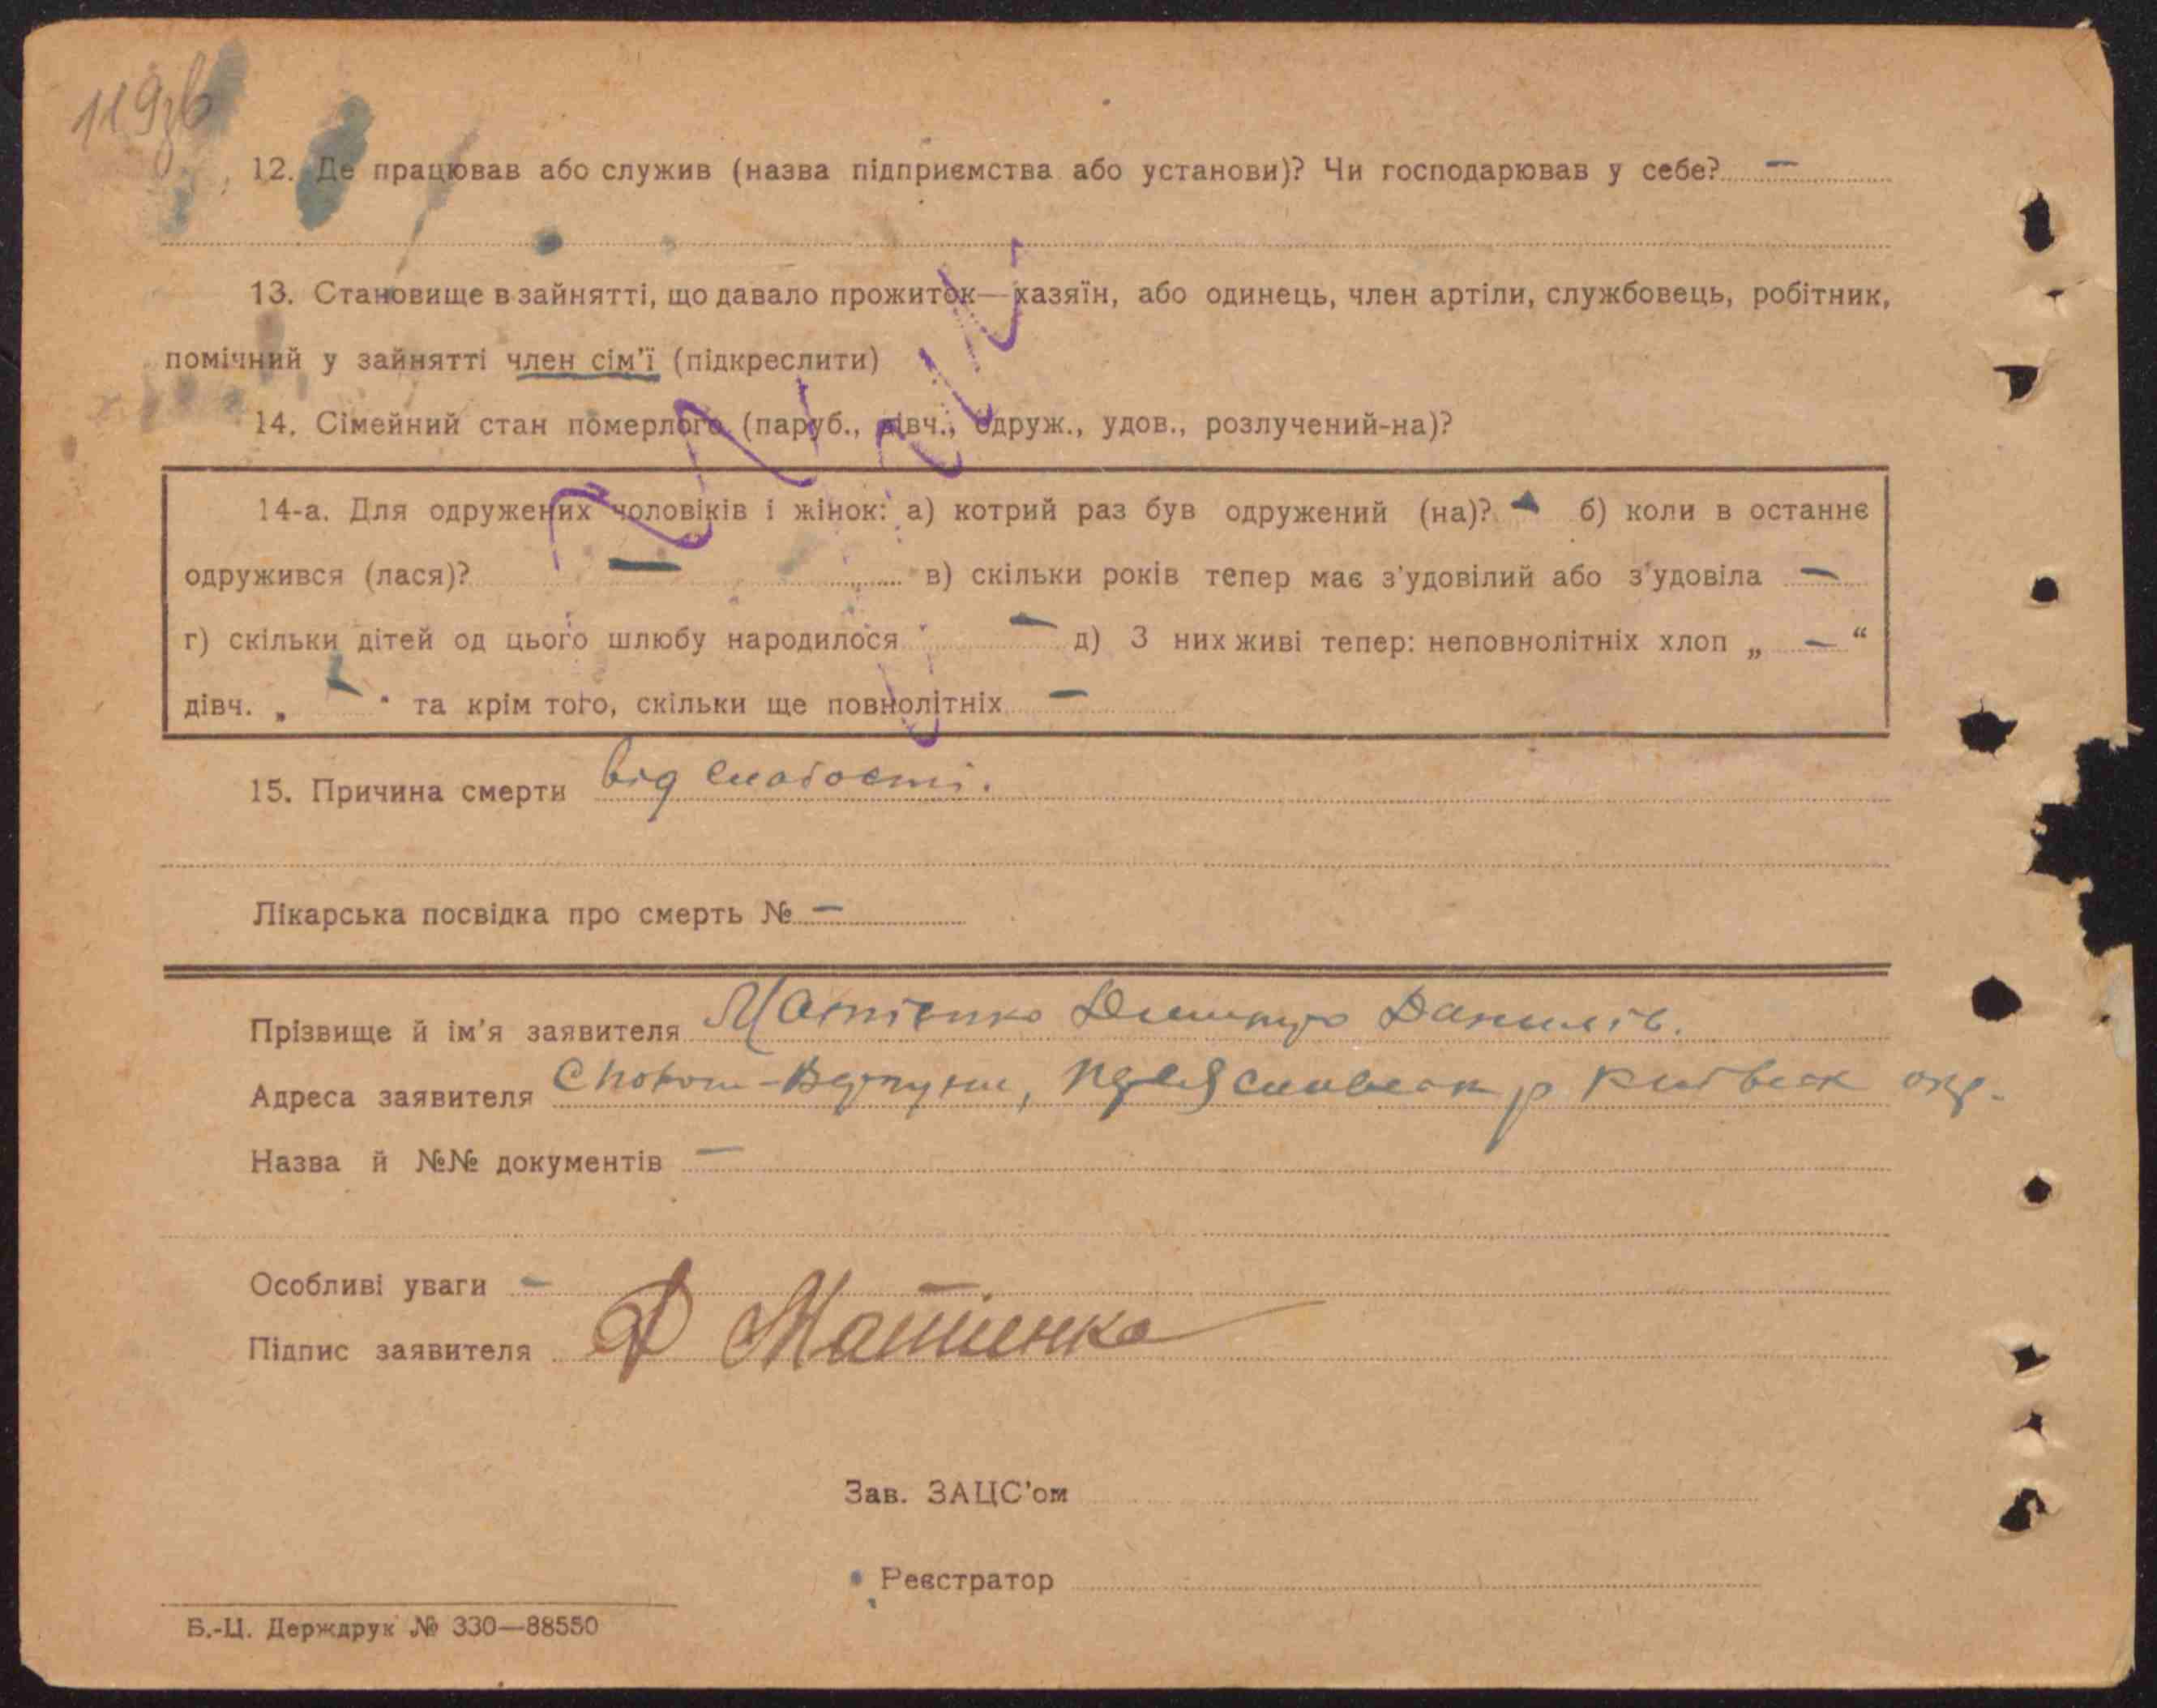 119зв
12. Де працював або служив (назва підприємства або установи)? Чи господарював у себе? —
13. Становище в зайнятті, що давало прожиток—хазяїн, або одинець, член артіли, службовець, робітник,
помічний у зайнятті член сім'ї (підкреслити)
14. Сімейний стан померлого (паруб., дівч., одруж., удов., розлучений-на)?
14-а. Для одружених чоловіків і жінок: а) котрий раз був одружений (на)? — б) коли в останнє
одружився (лася)? — в) скільки років тепер має з'удовілий або з'удовіла —
г) скільки дітей од цього шлюбу народилося — д) З них живі тепер: неповнолітніх хлоп „ — “
дівч. „ — “ та крім того, скільки ще повнолітніх —
15. Причина смерти від слабості.
Лікарська посвідка про смерть № —
Прізвище й ім'я заявителя Матієнко Дмитро Данилів.
Адреса заявителя р Київськ окр.
Назва й №№ документів —
Особливі уваги —
Підпис заявителя Д Матіенко
Зав. ЗАЦС'ом
Реєстратор
Б.-Ц. Держдрук № 330—88550